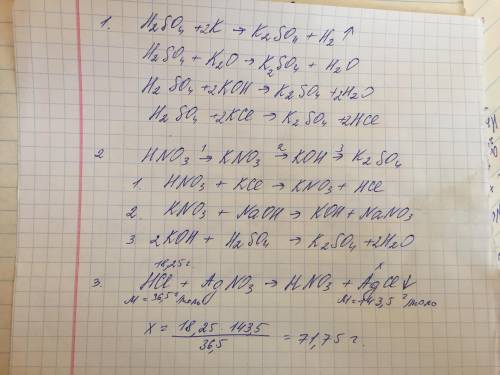 1. H₂SO₄ + 2K → K₂SO₄ + H₂ ↑
H₂SO₄ + K₂O → K₂SO₄ + H₂O
H₂SO₄ + 2KOH → K₂SO₄ + 2H₂O
H₂SO₄ + 2KCl → K₂SO₄ + 2HCl
2. HNO₃ →¹ KNO₃ →² KOH →³ K₂SO₄
1. HNO₃ + KCl → KNO₃ + HCl
2. KNO₃ + NaOH → KOH + NaNO₃
3. 2KOH + H₂SO₄ → K₂SO₄ + 2H₂O
18,25г x
3. HCl + AgNO₃ → HNO₃ + AgCl↓
M = 36,5 г/моль M = 143,5 г/моль
x = 18,25 · 143,5 / 36,5 = 71,75 г.